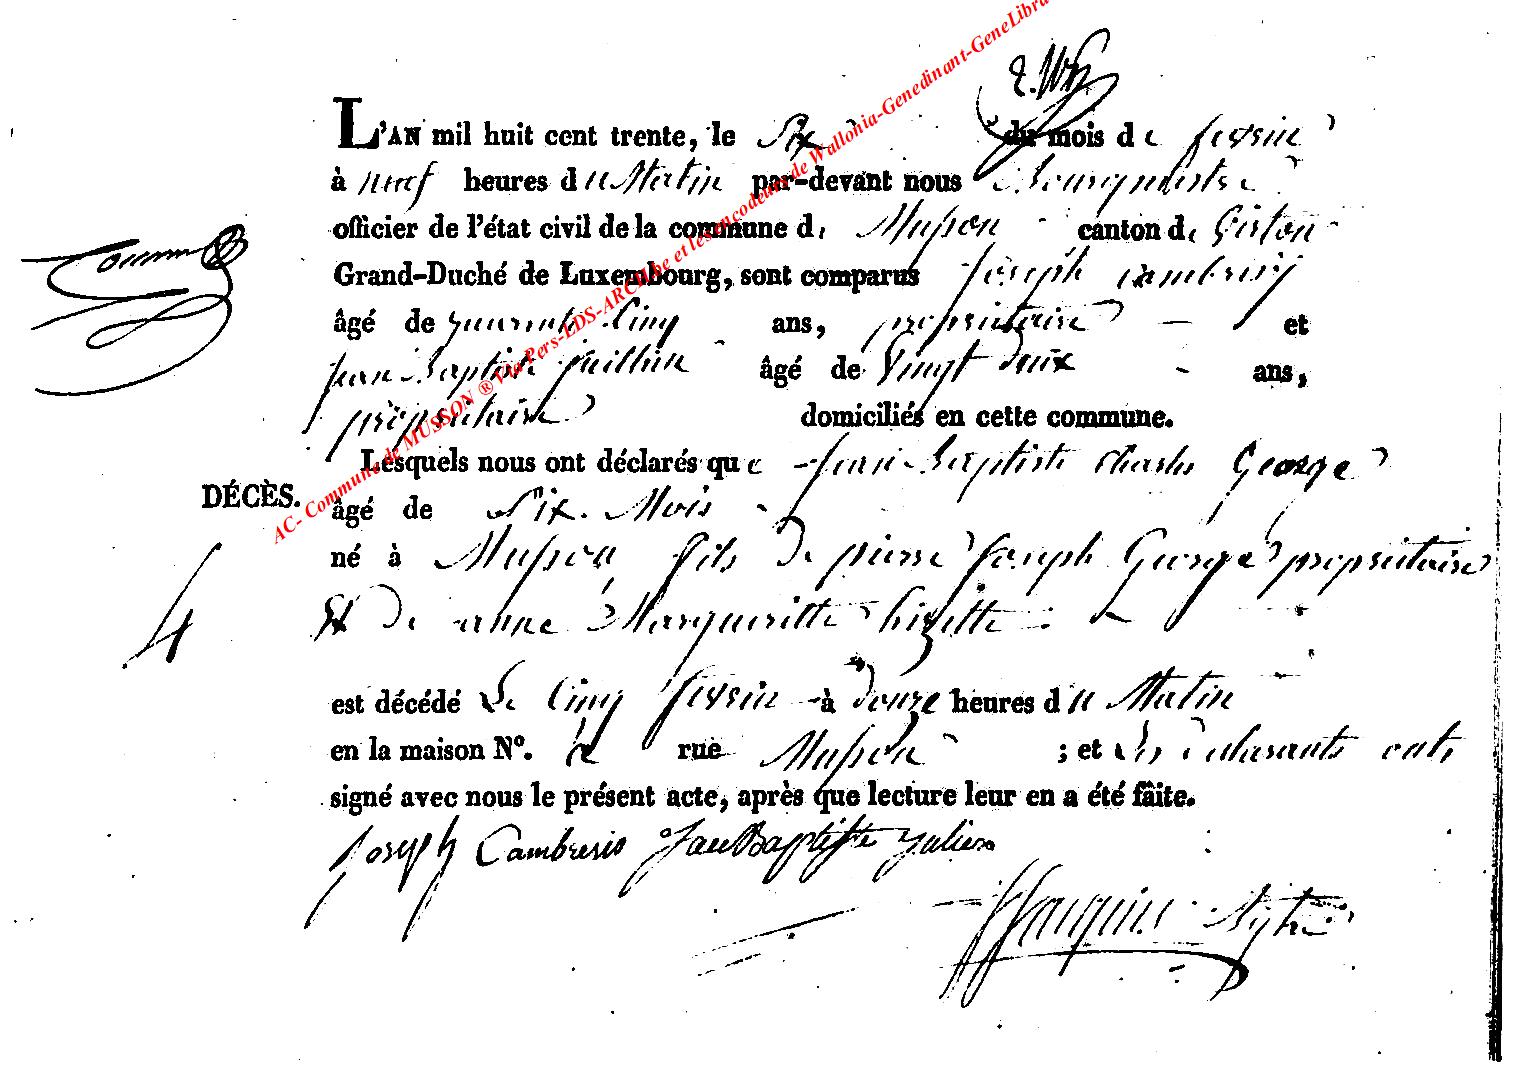 L'AN mil huit cent trente, le Six du mois de fevrier
à neuf heures du Matin par-devant nous Bourguemestre
officier de l'état civil de la commune de Musson canton de Virton
Grand-Duché de Luxembourg, sont comparus Joseph Cambresy
âgé de quarante Cinq ans, propriétaire et
Jean Baptiste Juillien âgé de Vingt deux ans,
propriétaire domiciliés en cette commune.
Lesquels nous ont déclarés que Jean-Baptiste Charles George
DÉCÈS. âgé de Six Mois
né à Musson fils de pierre Joseph George propriétaire
4 Et de anne Margueritte
est décédé Le Cinq fevrier à douze heures du Matin
en la maison N°. rue Musson ; et Les Déclarants onts
signé avec nous le présent acte, après que lecture leur en a été faite.
Joseph Cambresis Jau Baptiste Julien
AC- Commune de MUSSON ® Via Pers-LDS-ARCH.be et les encodeurs de Wallonia-Genedinant-GeneLibra